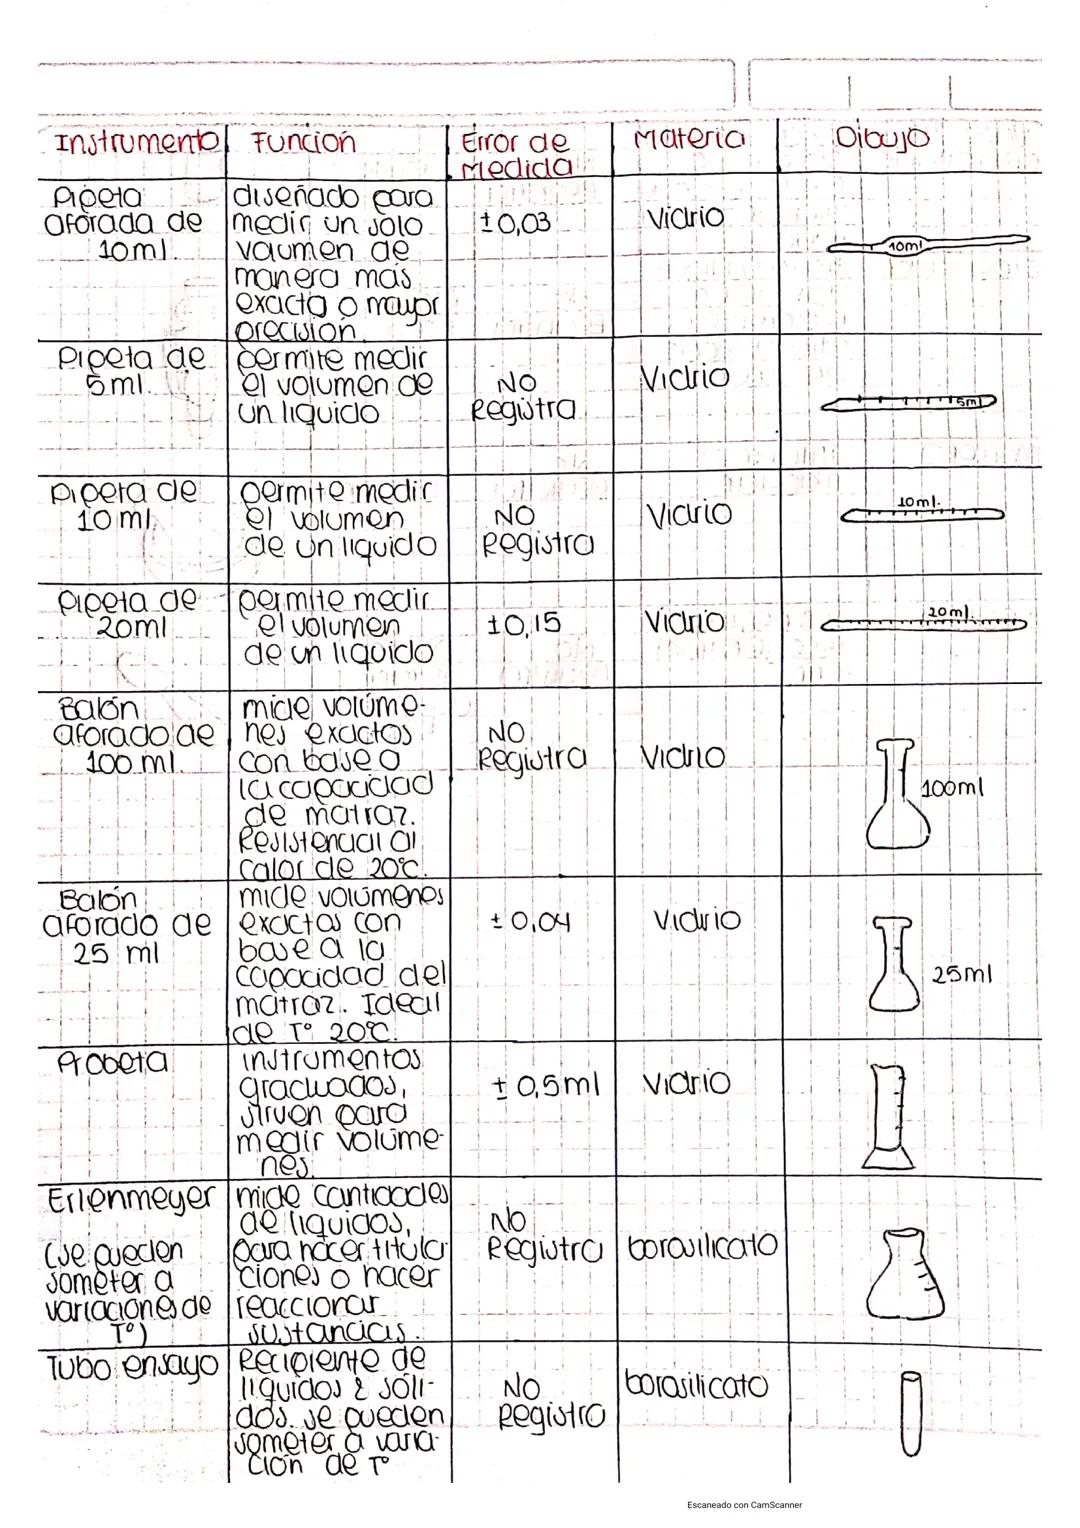 Instrumento Función Error de Medida Materia Dibujo
Pipeta
aforada de
10ml.
diseñado para
medir un solo
volumen de
manera más
exacta o mayor
precisión.
±0,03
Vidrio
10ml
Pipeta de
5ml.
permite medir
el volumen de
un liquido
No
Registra
Vidrio
5ml
Pipeta de
10ml.
permite medir
el volumen
de un liquido
No
Registra
Vidrio
10ml.
Pipeta de
20ml
permite medir
el volumen
de un liquido
±0,15
Vidrio
20ml.
Balón
aforado de
100 ml.
mide volúme-
nes exactos
con base a
la capacidad
de matraz.
Resistencial al
calor de 20°C.
No
Registra
Vidrio
100ml
Balón
aforado de
25 ml
mide volúmenes
exactos con
base a la
capacidad del
matraz. Ideal
de T° 20°C.
± 0,04
Vidrio
25ml
Probeta
instrumentos
graduados,
sirven para
medir volúme-
nes.
± 0,5ml
Vidrio
Erlenmeyer
(se pueden
someter a
variaciones de
T°)
mide cantidades
de liquidos,
para hacer titula-
ciones o hacer
reaccionar
sustancias.
No
Registra
borosilicato
Tubo ensayo
Recipiente de
liquidos & sóli-
dos. se pueden
someter a varia-
ción de T°
No
Registro
borosilicato
Escaneado con CamScanner